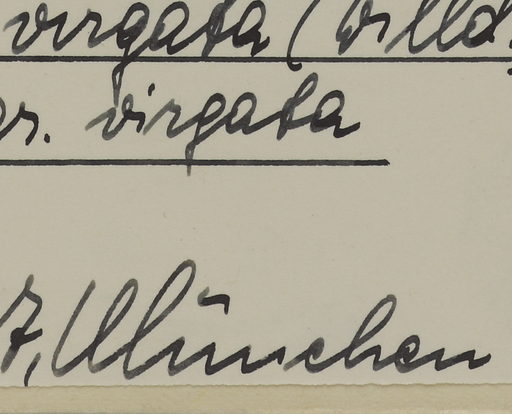 virgata (Willd.
r. virgata
7, München